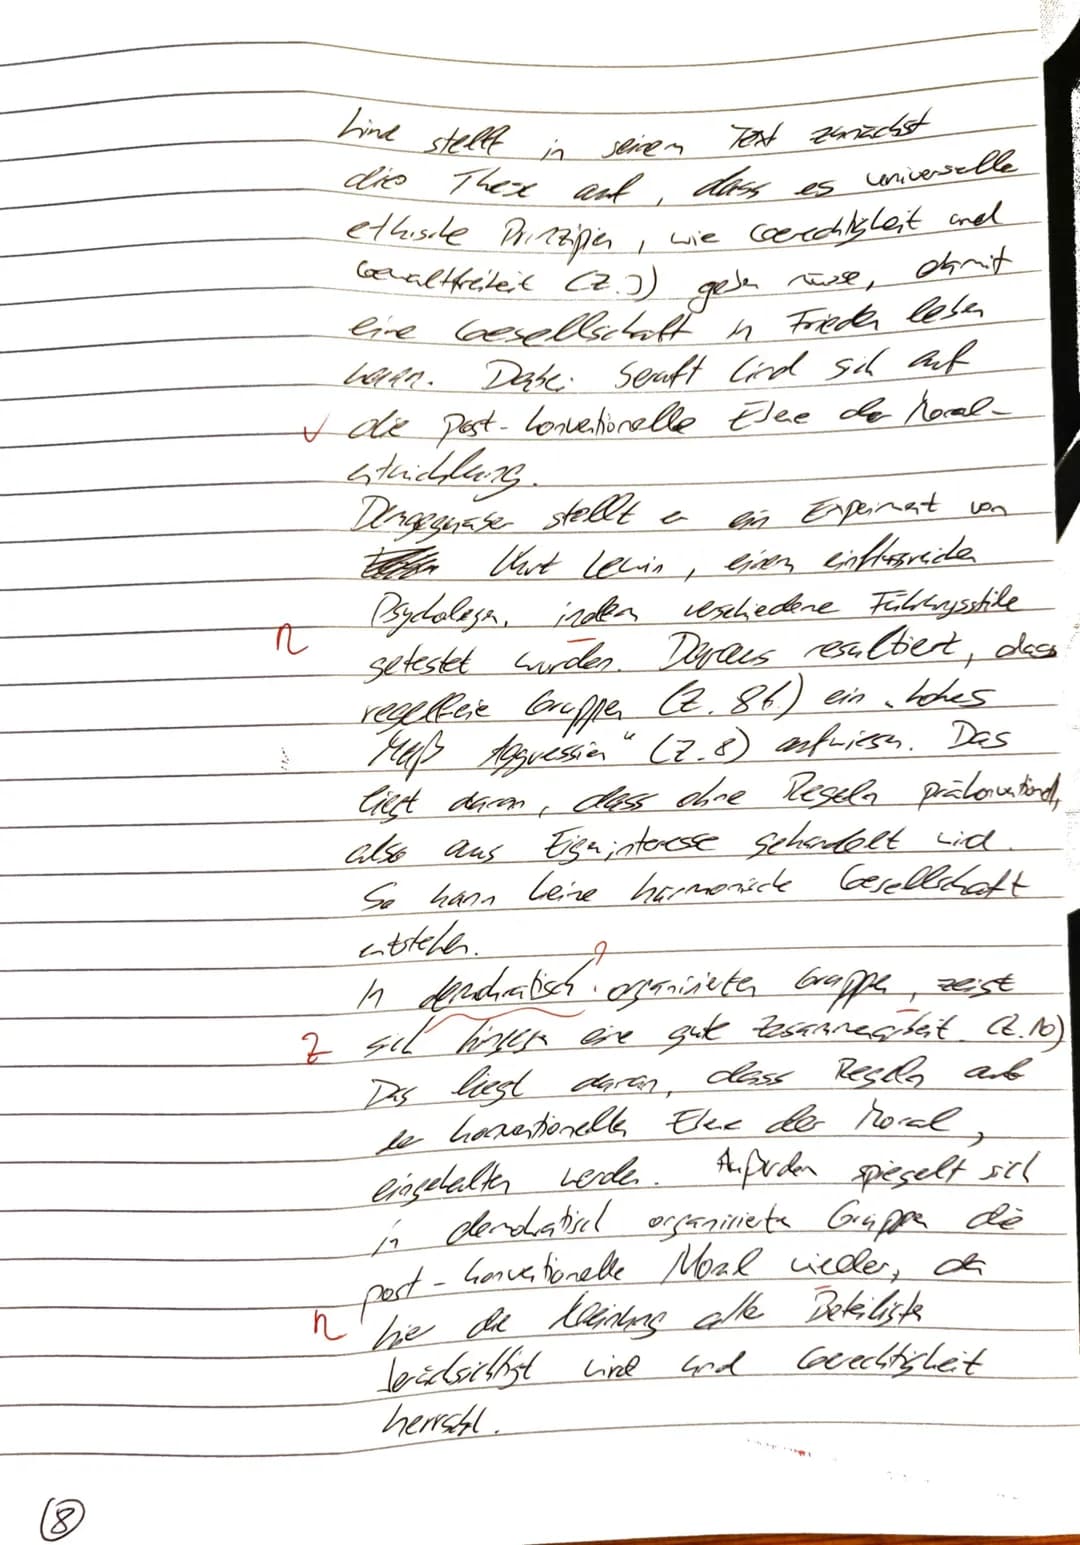 Lind stellt in seinem Text zunächst
die These auf, dass es universelle
ethische Prinzipien, wie Gerechtigkeit und
Gewaltfreiheit (Z. ) geben müsse, damit
eine Gesellschaft in Frieden leben
kann. Dabei beruft Lind sich auf
✓ die post-konventionelle Ebene der Moral-
entwicklung.
Demgegenüber stellt er ein Experiment von
Kurt Lewin, einem einflussreichen
Psychologen, indem verschiedene Führungsstile
n
getestet wurden. Daraus resultiert, dass
regelfreie Gruppen (Z. 8f.) ein „hohes
Maß Aggression“ (Z. 8) aufwiesen. Das
liegt daran, dass ohne Regeln präkonventionell,
also aus Eigeninteresse gehandelt wird.
So kann keine harmonische Gesellschaft
entstehen.
In demokratisch organisierten Gruppen, zeigt
Z sich hingegen eine gute Zusammenarbeit (Z. 10)
Das liegt daran, dass Regeln auf
der konventionellen Ebene der Moral,
eingehalten werden. Außerdem spiegelt sich
in demokratisch organisierten Gruppen die
post-konventionelle Moral wieder, da
n hier die Meinung aller Beteiligten
berücksichtigt wird und Gerechtigkeit
herrscht.
8